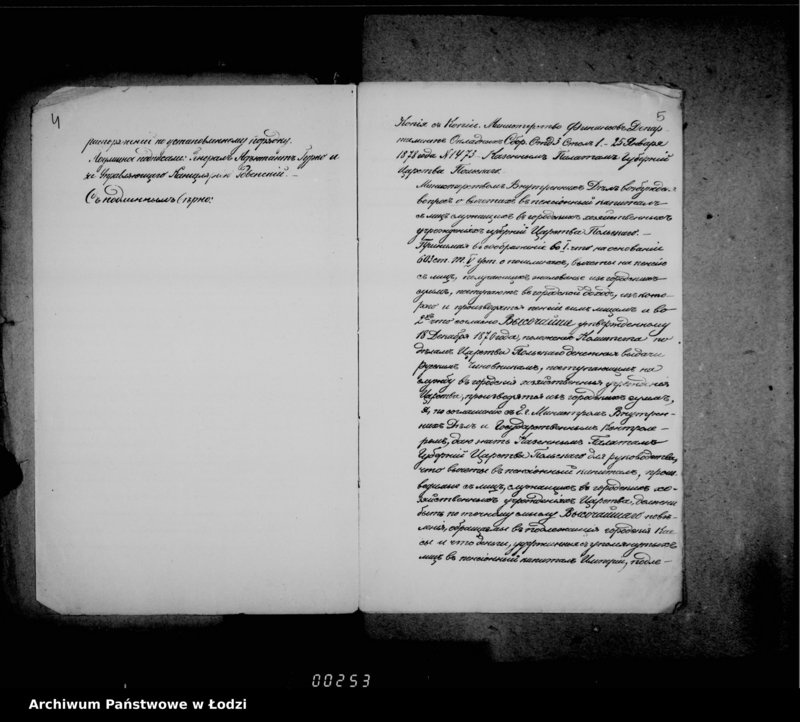 4
распоряженій по установленному порядку.
подписали: Генералъ Адъютантъ Гурко и
Управляющаго Канцеляріи
Съ подлиннымъ вѣрно:
5
Копія съ Копіи. Министерство Финансовъ, Депар-
таментъ Окладныхъ Сбор. Отд 3 Столъ 1.– 25 Января
1878 года № 1473. Казеннымъ Палатамъ Губерній
Царства Польскаго.
Министерствомъ Внутреннихъ Дѣлъ возбужденъ
вопросъ о вычетахъ въ пенсіонный капиталъ
съ лицъ служащихъ въ городскихъ хозяйственныхъ
учрежденіяхъ губерній Царства Польскаго.–
Принимая въ соображеніе во 1. что на основаніи
603 ст. т. V уст. о пошлинахъ, вычеты на пенсію
съ лицъ, получающихъ жалованье изъ городскихъ
суммъ, поступаютъ въ городской доходъ, изъ кото-
раго и производятся пенсіи симъ лицамъ и во
2хъ что согласно Высочайше утвержденному
18 Декабря 1870 года, положенію Комитета по
дѣламъ Царства Польскаго денежныя выдачи
русскимъ чиновникамъ, поступающимъ на
службу въ городскія хозяйственныя учрежденія
Царства, производятся изъ городскихъ суммъ,
я, по соглашенію съ Г. Министромъ Внутрен-
нихъ Дѣлъ и Государственнымъ Контроле-
ромъ, даю знать Казеннымъ Палатамъ
Губерній Царства Польскаго для руководства,
что вычеты въ пенсіонный капиталъ, произ-
водимые съ лицъ, служащихъ въ городскихъ хо-
зяйственныхъ учрежденіяхъ Царства, должны
быть по точному смыслу Высочайшаго повелѣ-
нія, обращаемы въ подлежащія городскія Кас-
сы и что деньги, удержанныя съ упомянутыхъ
лицъ въ пенсіонный капиталъ Имперіи, подле-
00253
Archiwum Państwowe w Łodzi